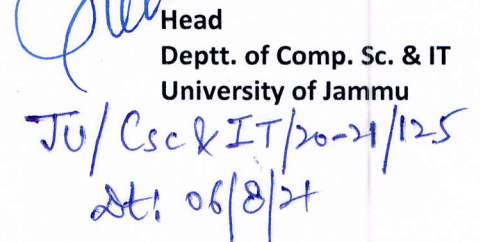 Head
Deptt. of Comp. Sc. & IT
University of Jammu
JU/Csc&IT/20-21/125
Dt: 06/8/21